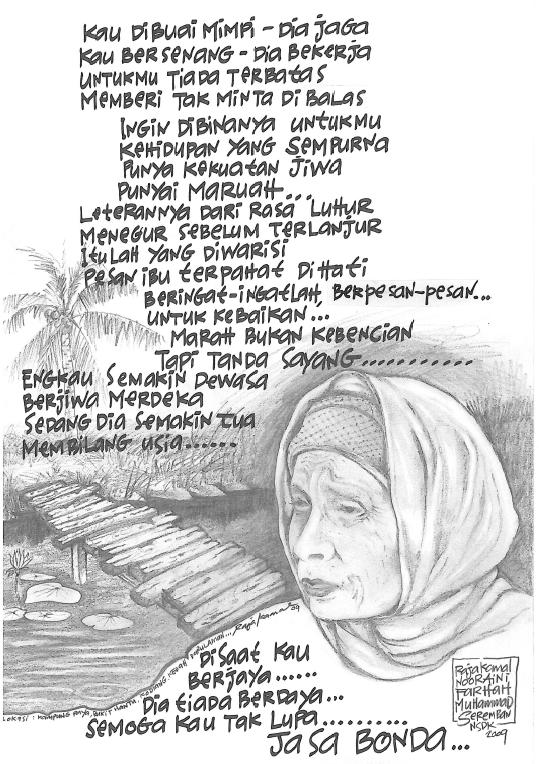 KAU DIBUAI MIMPI - DIA JAGA
KAU BERSENANG - DIA BEKERJA
UNTUKMU TIADA TERBATAS
MEMBERI TAK MINTA DI BALAS
INGIN DIBINANYA UNTUKMU
KEHIDUPAN YANG SEMPURNA
PUNYA KEKUATAN JIWA
PUNYAI MARUAH...
LETERANNYA DARI RASA LUHUR
MENEGUR SEBELUM TERLANJUR
ITULAH YANG DIWARISI
PESAN IBU TERPAHAT DIHATI
BERINGAT-INGATLAH, BERPESAN-PESAN...
UNTUK KEBAIKAN...
MARAH BUKAN KEBENCIAN
TAPI TANDA SAYANG...........
ENGKAU SEMAKIN DEWASA
BERJIWA MERDEKA
SEDANG DIA SEMAKIN TUA
MEMBILANG USIA......
DISAAT KAU
BERJAYA......
DIA TIADA BERDAYA...
SEMOGA KAU TAK LUPA..........
JASA BONDA...
LOKASI: KAMPUNG PAYA, BUKIT
Raja Kamal 09
RAJA KAMAL
NOORAINI
FARHAH
MUHAMMAD
SEREMBAN
NSDK
2009